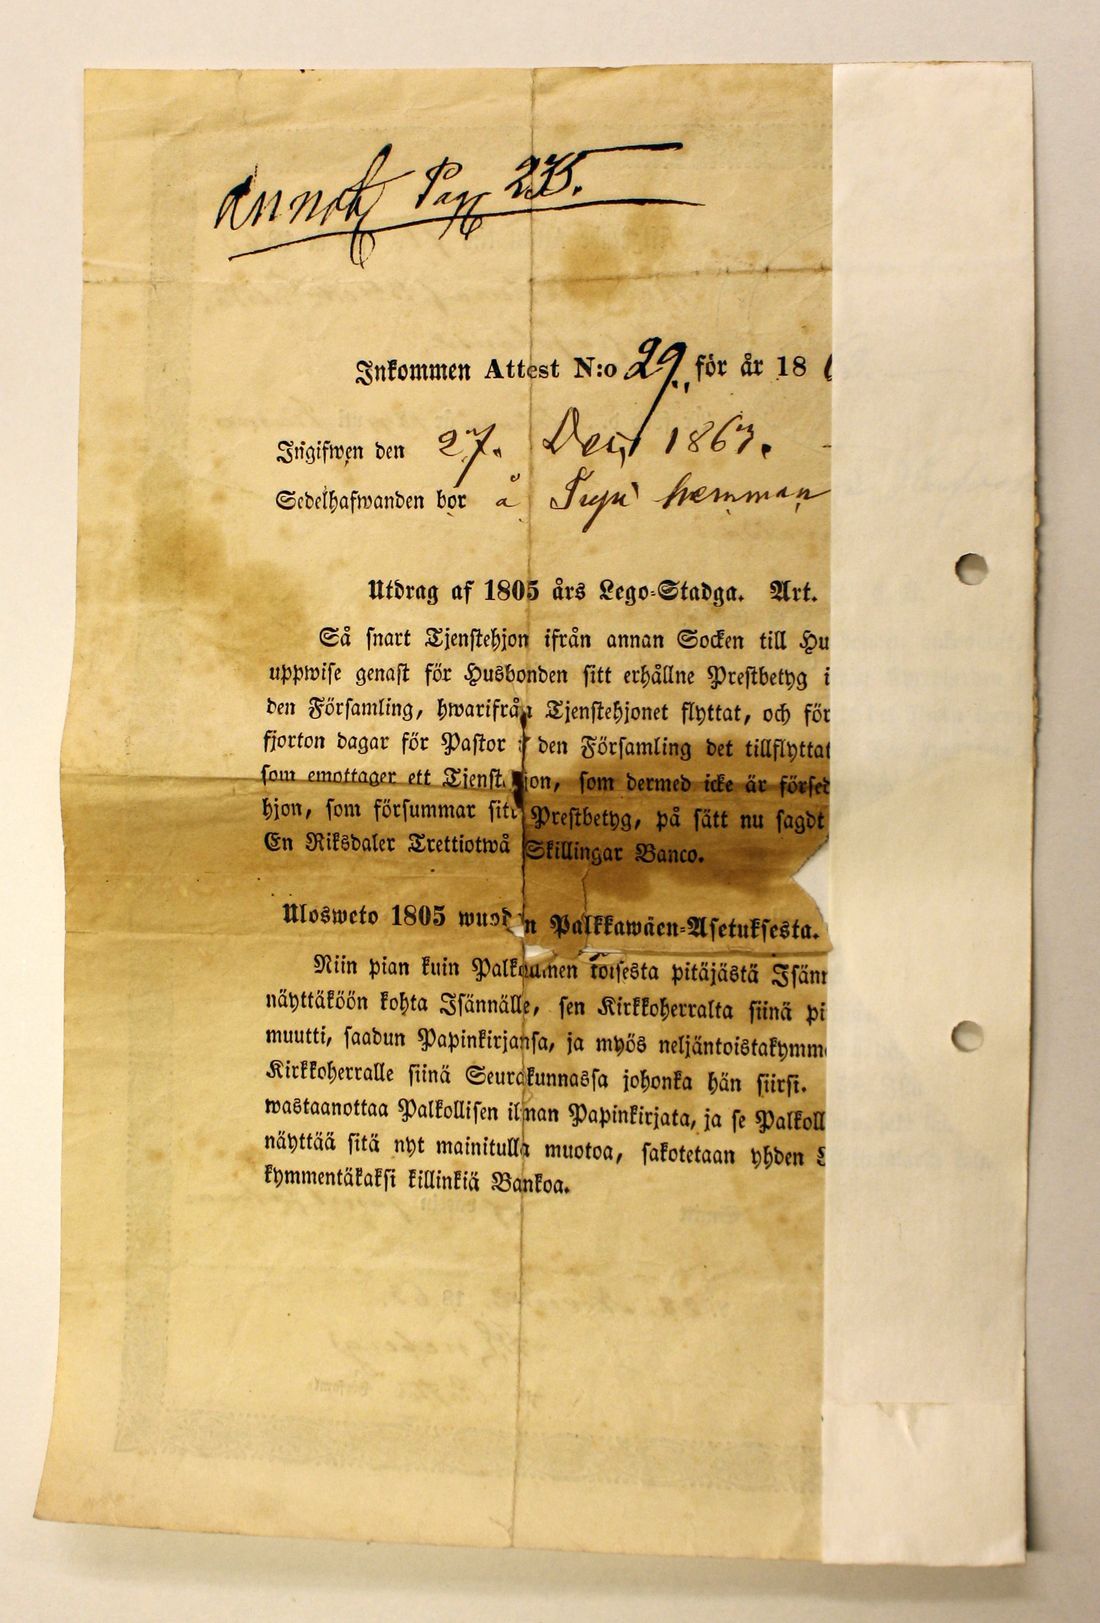 Annot Pag 235.
Inkommen Attest N:o 29. för år 18
Ingifwen den 27. Dec. 1863.
Sedelhafwanden bor å hemman
Utdrag af 1805 års Lego-Stadga. Art.
Så snart Tjenstehjon ifrån annan Socken till Hu
uppwise genast för Husbonden sitt erhållne Prestbetyg i
den Församling, hwarifrån Tjenstehjonet flyttat, och för
fjorton dagar för Pastor i den Församling det tillflyttat
som emottager ett Tjenstehjon, som dermed icke är försed
hjon, som försummar sitt Prestbetyg, på sätt nu sagdt
En Riksdaler Trettiotwå Skillingar Banco.
Ulosweto 1805 wuoden Palkkawäen-Asetuksesta.
Niin pian kuin Palkollinen toisesta pitäjästä Isänn
näyttäköön kohta Isännälle, sen Kirkkoherralta siinä pi
muutti, saadun Papinkirjansa, ja myös neljäntoistakymme
Kirkkoherralle siinä Seurakunnassa johonka hän siirsi.
wastaanottaa Palkollisen ilman Papinkirjata, ja se Palkoll
näyttää sitä nyt mainitulla muotoa, sakotetaan yhden
kymmentäkaksi killinkiä Bankoa.